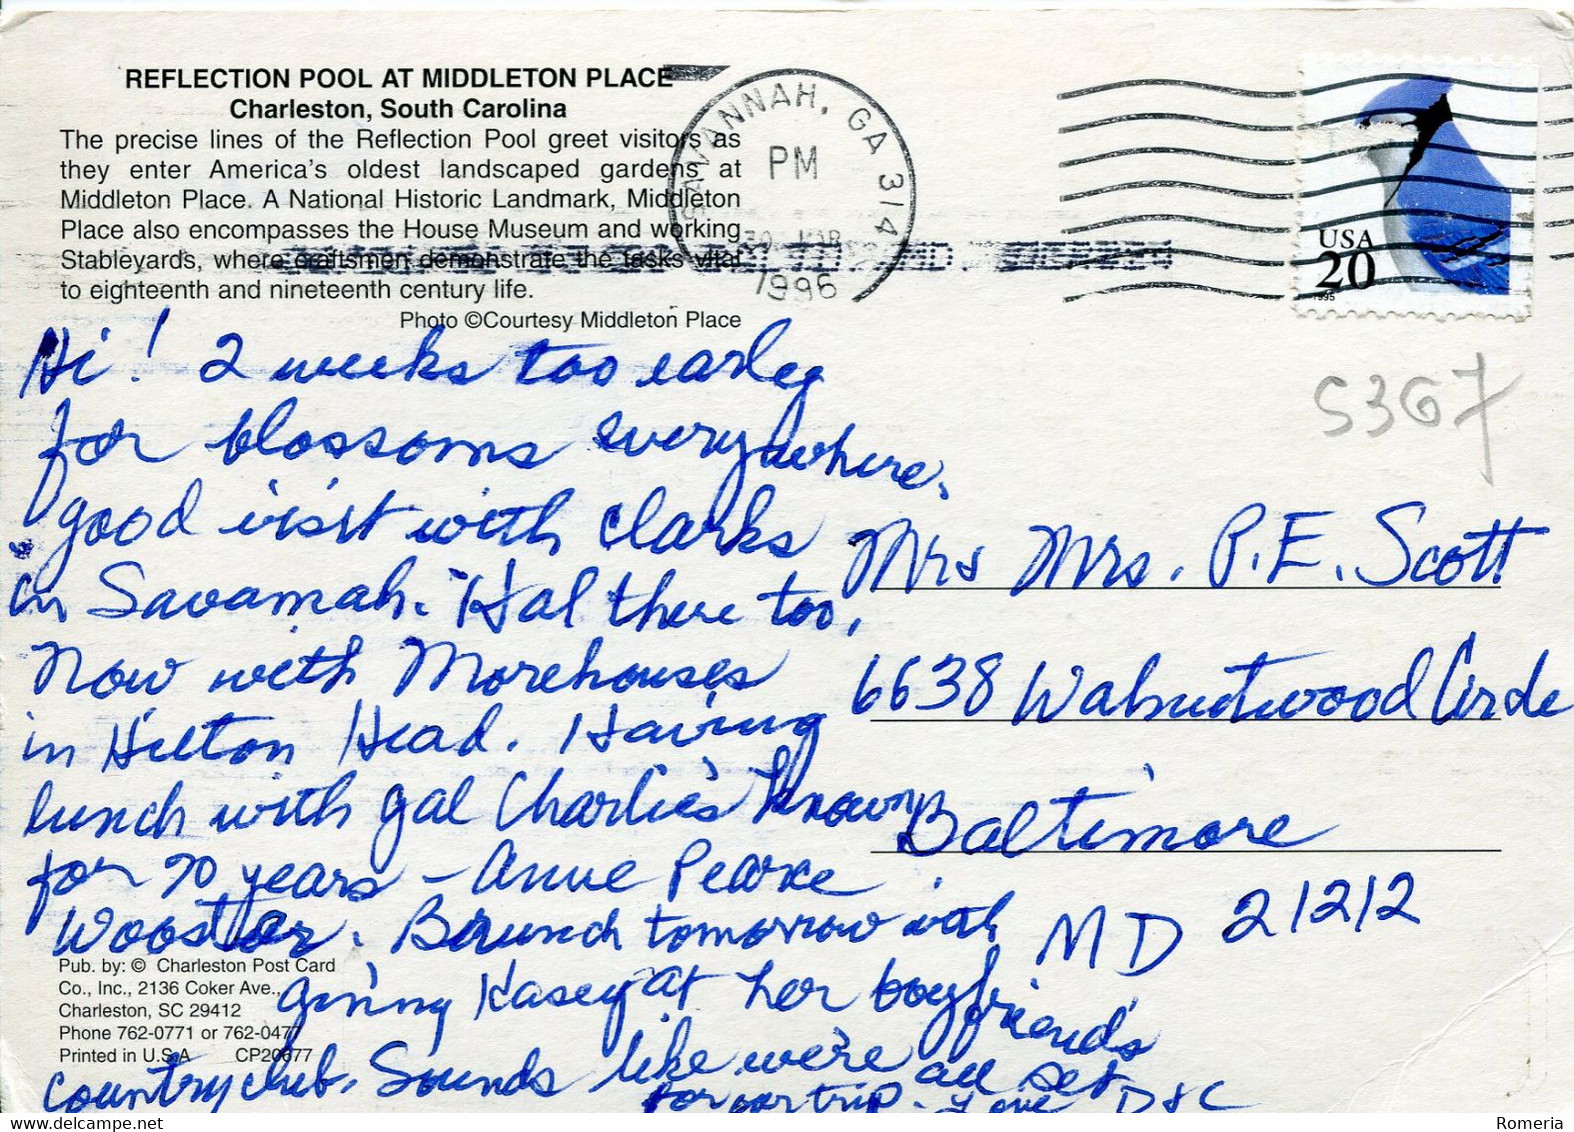 REFLECTION POOL AT MIDDLETON PLACE
Charleston, South Carolina
The precise lines of the Reflection Pool greet visitors as
they enter America's oldest landscaped gardens at
Middleton Place. A National Historic Landmark, Middleton
Place also encompasses the House Museum and working
Stableyards, where craftsmen demonstrate the tasks vital
to eighteenth and nineteenth century life.
Photo ©Courtesy Middleton Place
SAVANNAH, GA 314
PM
30 MAR
1996
USA
20
1995
5367
Hi! 2 weeks too early
for blossoms everywhere.
Good visit with Clarks
in Savamah. Hal there too,
Now with Morehouses
in Hilton Head. Having
lunch with gal Charlie's known
for 70 years - Anne Pearce
Wooster. Brunch tomorrow with
Ginny Kasey at her boyfriend's
country club. Sounds like we're all set
for our trip. Love D & C
Mrs Mrs. P.E. Scott
6638 Walnutwood Circle
Baltimore
MD 21212
Pub. by: © Charleston Post Card
Co., Inc., 2136 Coker Ave.,
Charleston, SC 29412
Phone 762-0771 or 762-0477
Printed in U.S.A CP20677
Romeria